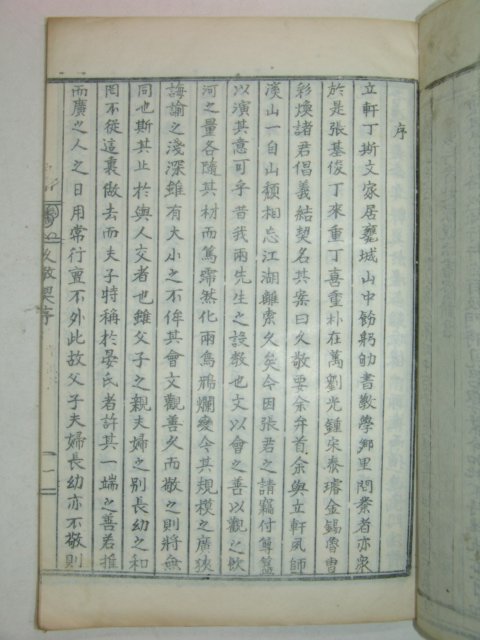 序
立軒丁斯文家居甕城山中飭躬劬書敎學鄕里問業者亦衆
於是張基俊丁來重丁喜重朴在萬劉光鍾宋泰璿金錫魯曺
彩煥諸君倡義結契名其案曰久敬要余弁首余與立軒夙師
溪山一自山頹相忘江湖離索久矣今因張君之請竊付蓴鱸
以演其意可乎昔我兩先生之設敎也文以會之善以觀之飮
河之量各隨其材而篤霈然化雨鳥鴉爛變令其規模之廣狹
誨諭之淺深雖有大小之不侔其會文觀善久而敬之則將無
同也斯其止於與人交者也雖父子之親夫婦之別長幼之和
罔不從這裏做去而夫子特稱於晏氏者許其一端之善若推
而廣之人之日用常行亶不外此故父子夫婦長幼亦不敬則
久敬契序
一